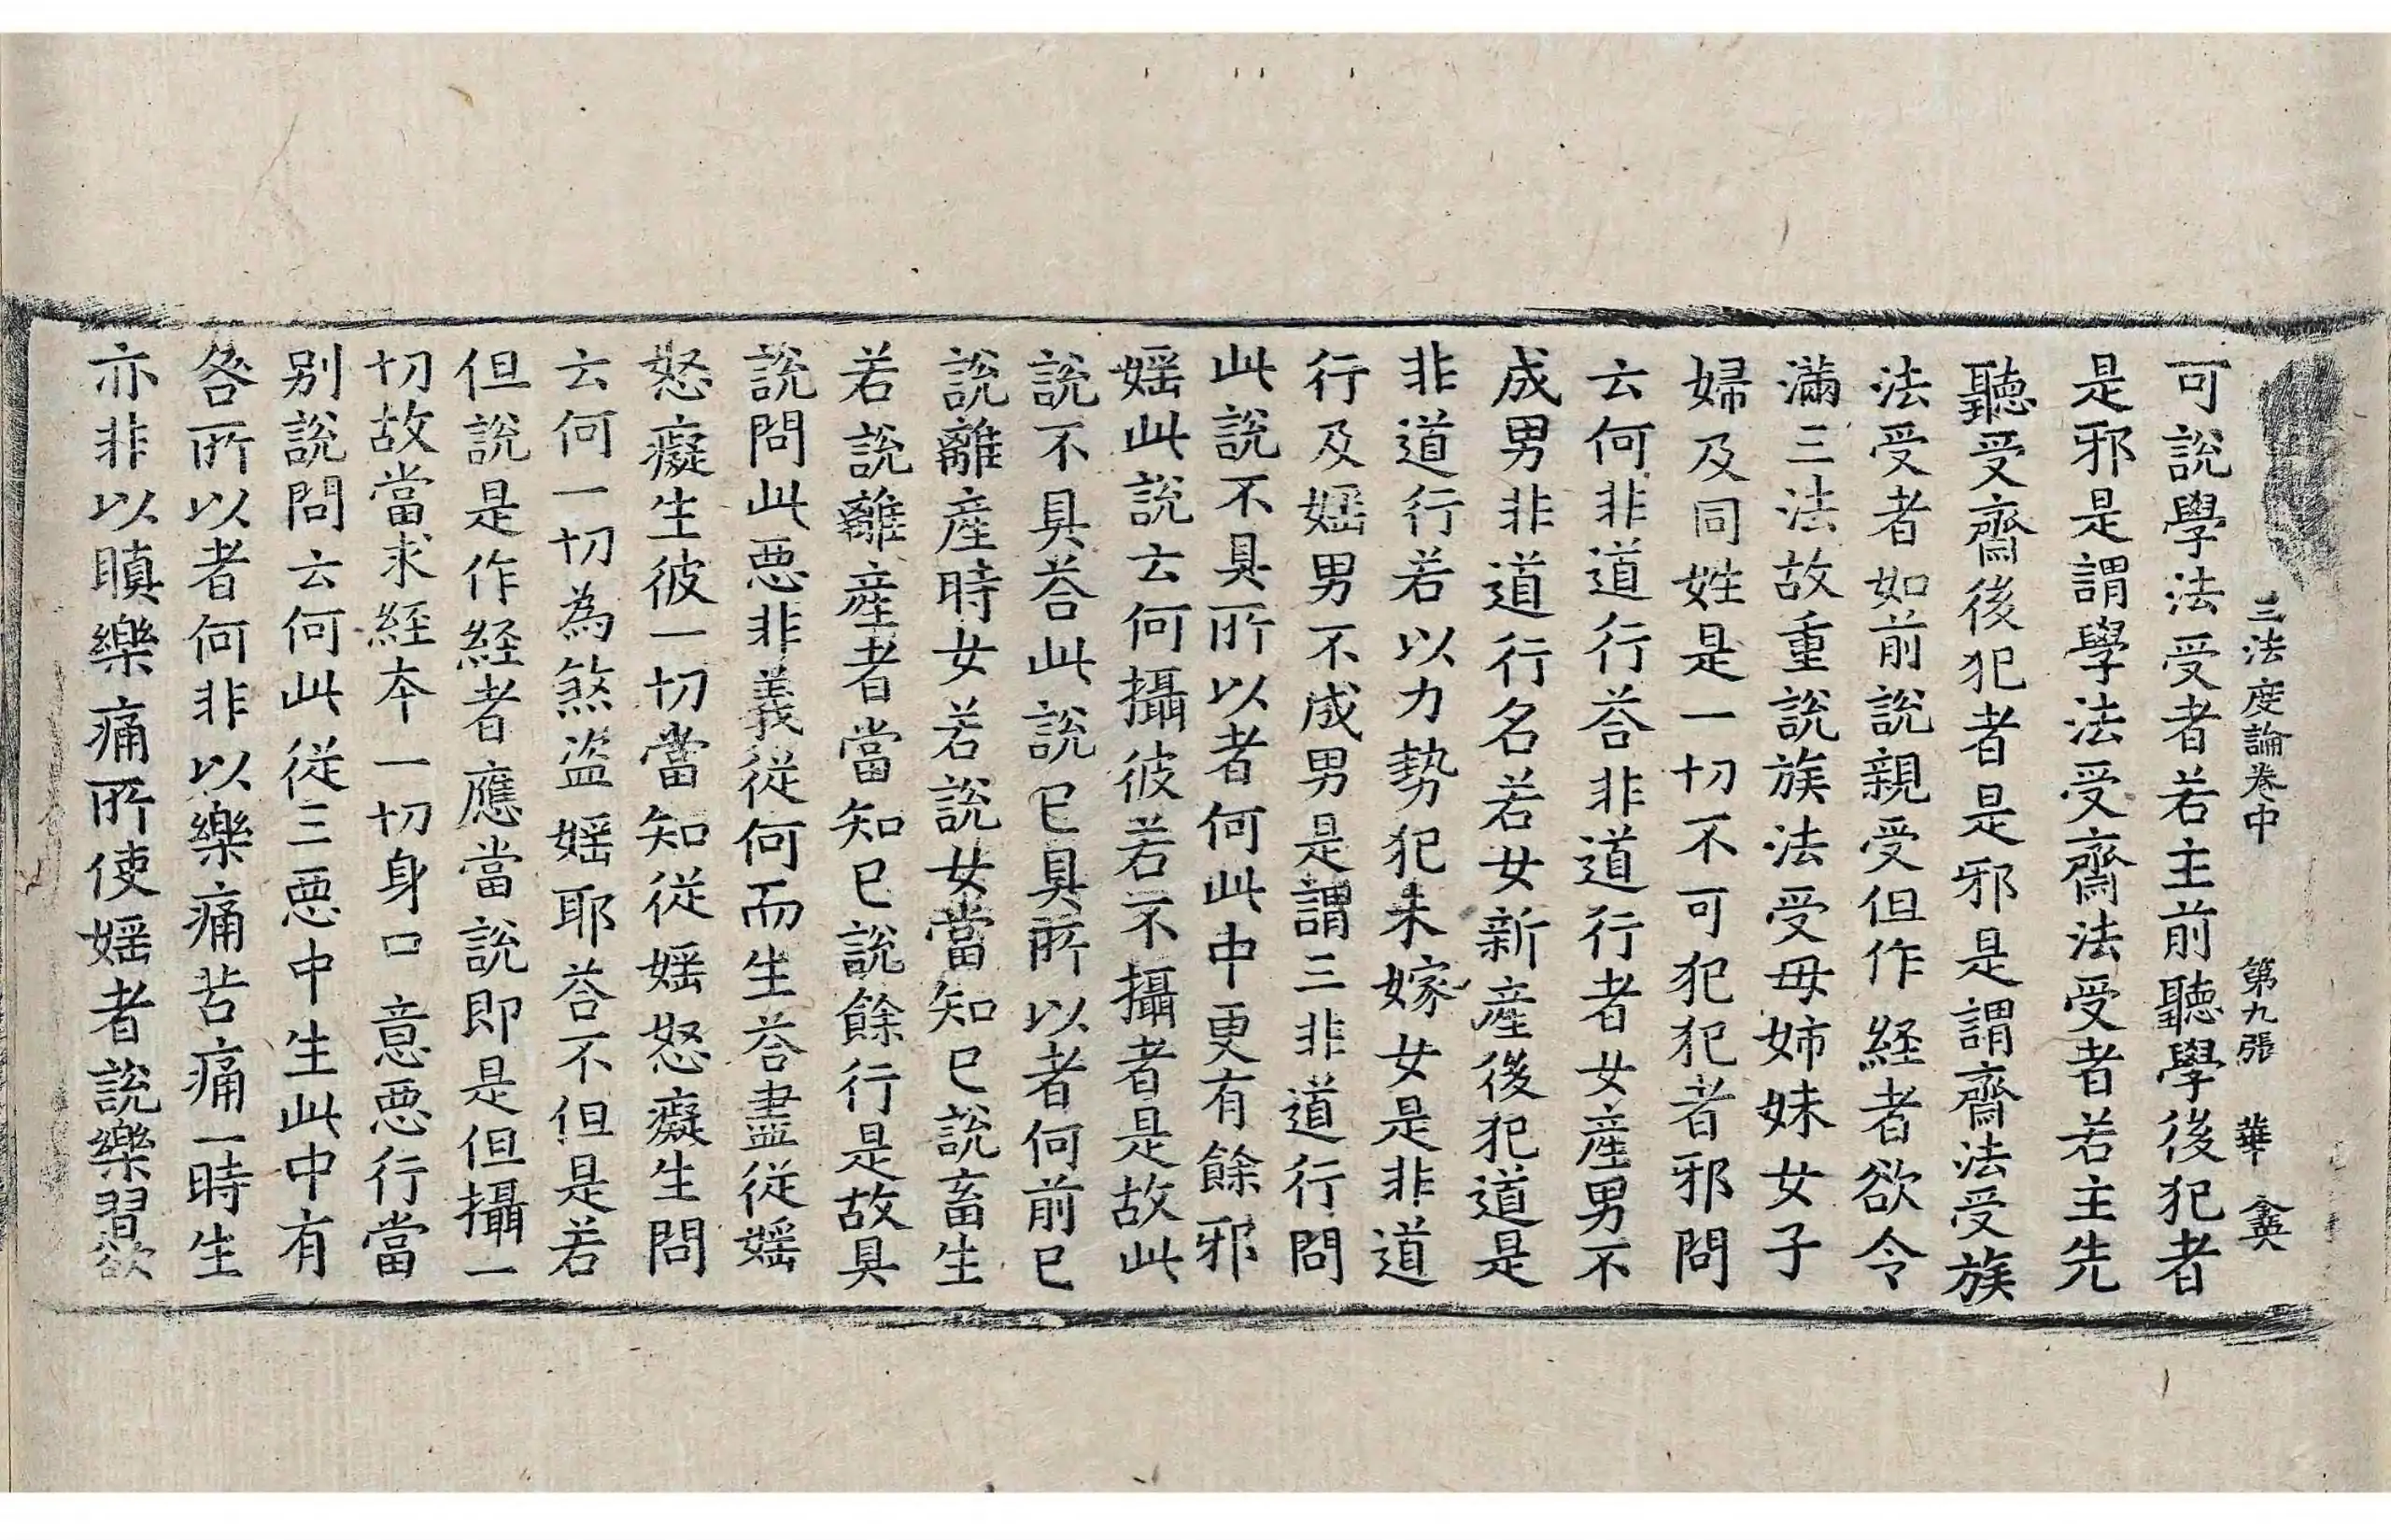 三法度論卷中 第九張 華 𨥥
可說學法受者若主前聽學後犯者
是邪是謂學法受齋法受者若主先
聽受齋後犯者是邪是謂齋法受族
法受者如前說親受但作経者欲令
滿三法故重說族法受母姉妹女子
婦及同姓是一切不可犯犯者邪問
云何非道行荅非道行者女產男不
成男非道行名若女新產後犯道是
非道行若以力勢犯未嫁女是非道
行及婬男不成男是謂三非道行問
此說不具所以者何此中更有餘邪
婬此說云何攝彼若不攝者是故此
說不具荅此說已具所以者何前已
說離產時女若說女當知已說畜生
若說離產者當知已說餘行是故具
說問此惡非義從何而生荅盡從婬
怒癡生彼一切當知從婬怒癡生問
云何一切為煞盜婬耶荅不但是若
但說是作経者應當說即是但攝一
切故當求経本一切身口意惡行當
别說問云何此從三惡中生此中有
咎所以者何非以樂痛苦痛一時生
亦非以瞋樂痛所使婬者說樂習欲